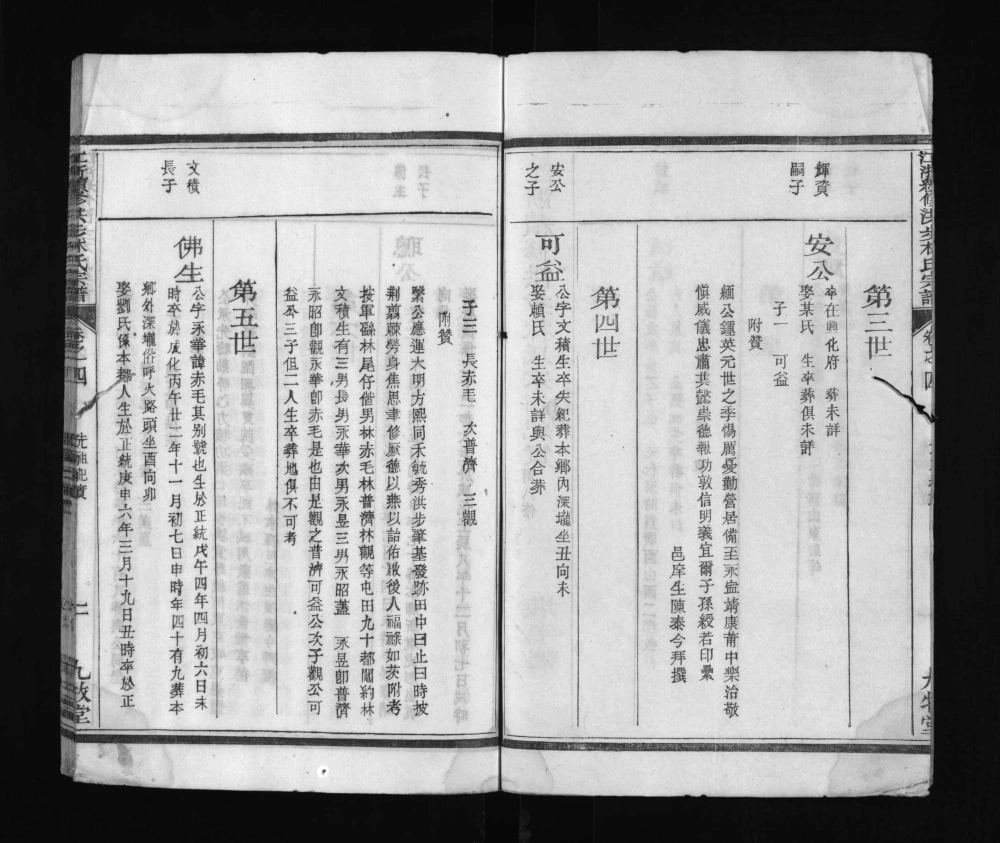 第三世
輝資
嗣子
安公
卒在興化府 葬未詳
娶某氏 生卒葬俱未詳
子一 可益
附贊
緬公鍾英元世之季惕厲憂勤營居備至永寍靖康莆中樂治敬
愼威儀忠肅其懿崇德報功敦信明義宜爾子孫綬若印纍
邑庠生陳泰今拜撰
第四世
安公
之子
可益
公字文積生卒失紀葬本鄉內深壠坐丑向未
娶賴氏 生卒未詳與公合葬
子三 長赤毛 次普濟 三觀
附贊
繄公應運大明方熙同禾毓秀洪步肇基發跡田中曰止曰時披
荆蒭棘勞身焦思聿修厥德以燕以詒佑啟後人福祿如茨附考
按軍繇林尾仔偕男林赤毛林普濟林觀等屯田九十都閩約林
文積生有三男長男永華次男永昱三男永昭蓋 永昱卽普濟
永昭卽觀永華卽赤毛是也由是觀之普濟可益公次子觀公可
益公三子但二人生卒葬地俱不可考
第五世
文積
長子
佛生
公字永華諱赤毛其别號也生於正統戊午四年四月初六日未
時卒於成化丙午廿二年十一月初七日申時年四十有九葬本
鄉外深壠俗呼火路頭坐酉向卯
娶劉氏係本都人生於正統庚申六年三月十九日丑時卒於正
卷之四
先祖紀實
二
九牧堂